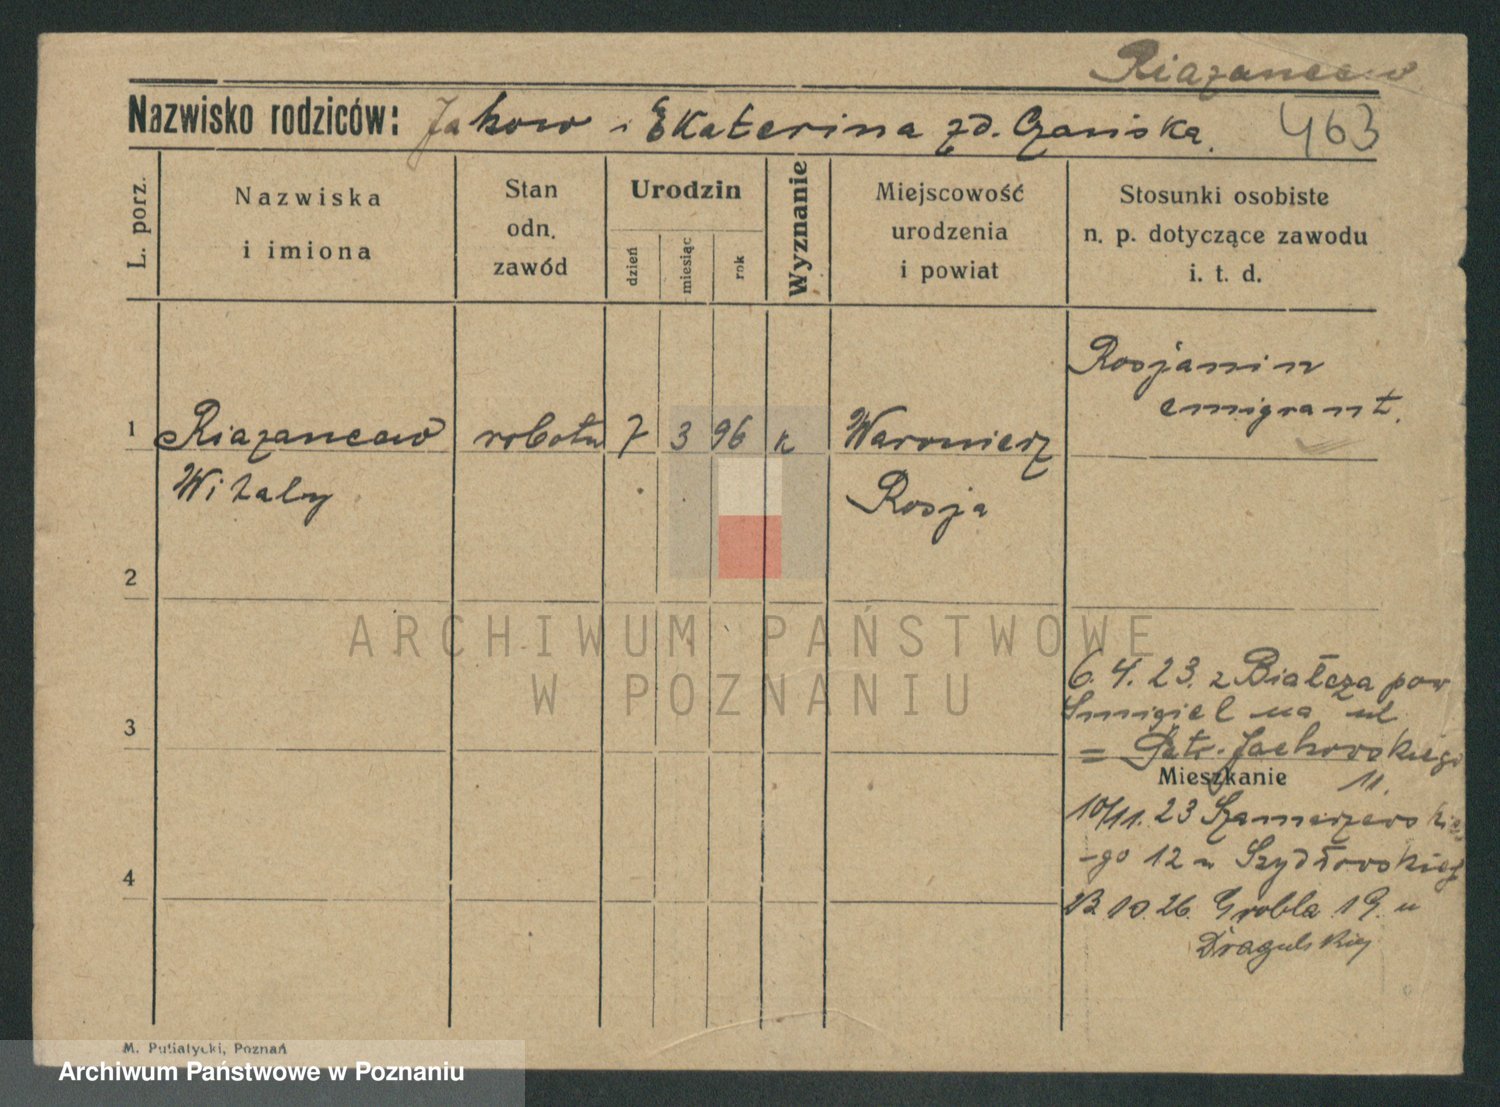 Riazancew
Nazwisko rodziców: Jakow i Ekaterina zd. Czańska.
463
L. porz.
Nazwiska
i imiona
Stan
odn.
zawód
Urodzin
dzień
miesiąc
rok
Wyznanie
Miejscowość
urodzenia
i powiat
Stosunki osobiste
n. p. dotyczące zawodu
i. t. d.
Rosjanin
emigrant.
1 Riazancew robotn 7 3 96 k
Witaly
Rosja
2
3
4
6. 4. 23. z Białcza pow
Smigiel na ul
= Patr. Jackowskiego
11.
Mieszkanie
10/11. 23 Szamarzewskie
-go 12 u Szydłowskiej
23. 10. 26. Grobla 19. u
Dragulskiej
M. Putiatycki, Poznań
ARCHIWUM PAŃSTWOWE
W POZNANIU
Archiwum Państwowe w Poznaniu